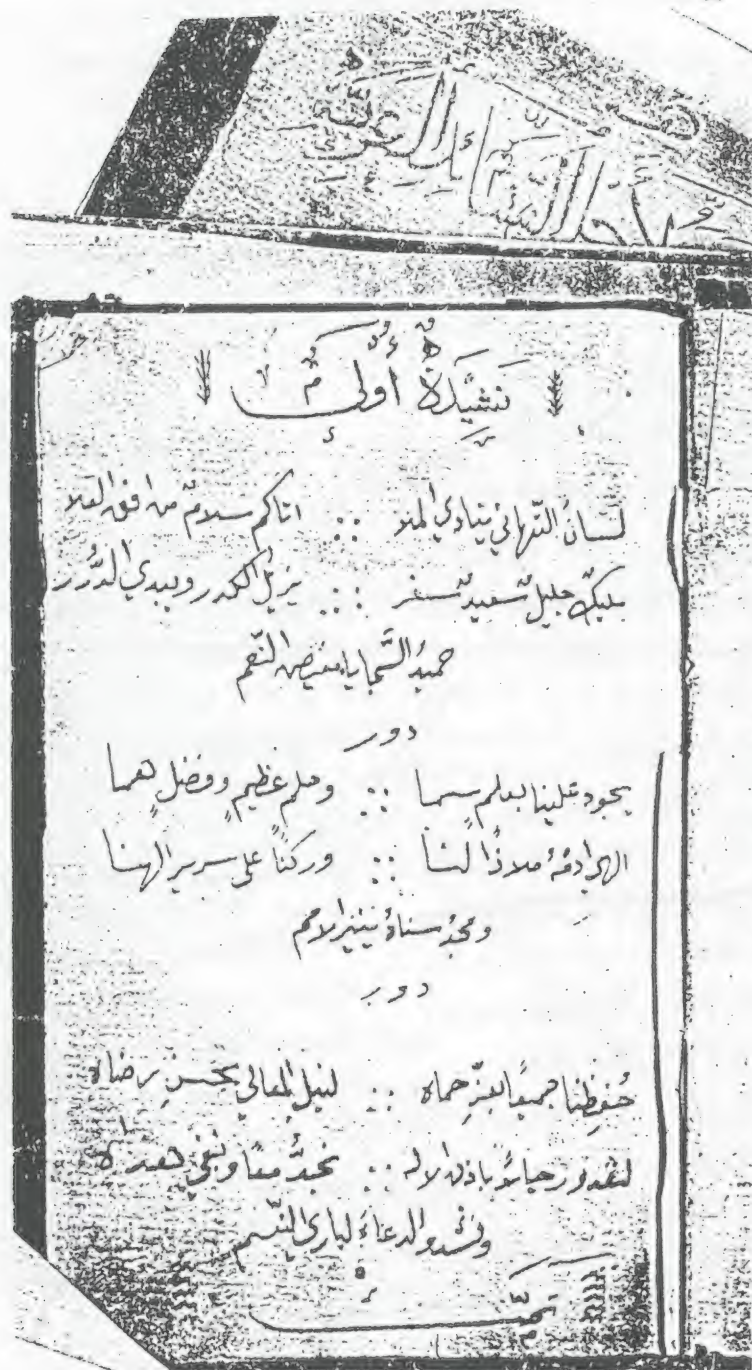 نَشِيدَةٌ أُولَى
لسانُ التّهاني ينادي الملا :: اتاكم سلامٌ من افق العلا
مليكٌ جليلٌ سعيدٌ سفر :: يزيلُ الكدر ويبدي الدُّرر
حميدُ السَّجايا مفيض النِّعم
دور
يجود علينا بعلمٍ سما :: وحلم عظيمٍ وفضلٍ هما
الهي ادمهُ ملاذًا لنا :: وركنًا على سرير الهنا
ومجدُ سناهُ ينير الامم
دور
حُفِظنا جميعًا بعزِّ حماه :: لنيل المعالي بحسنِ رضاه
لنغدو حياةً باذن الاله :: نجدُّ معًا ونبغي هداه
ونشدو الدعاءَ لباري النّسم
تمّت